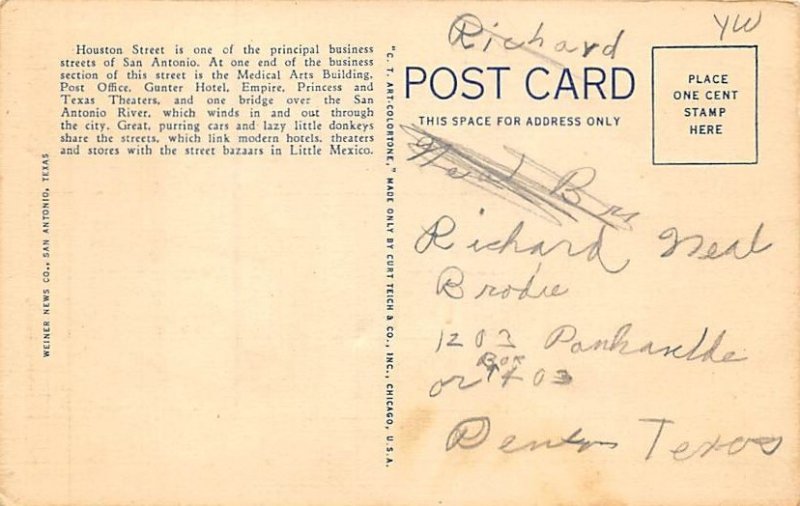 Houston Street is one of the principal business
streets of San Antonio. At one end of the business
section of this street is the Medical Arts Building,
Post Office, Gunter Hotel, Empire, Princess and
Texas Theaters, and one bridge over the San
Antonio River, which winds in and out through
the city. Great, purring cars and lazy little donkeys
share the streets, which link modern hotels, theaters
and stores with the street bazaars in Little Mexico.
WEINER NEWS CO., SAN ANTONIO, TEXAS
"C. T. ART-COLORTONE," MADE ONLY BY CURT TEICH & CO., INC., CHICAGO, U.S.A.
Richard
YW
POST CARD
THIS SPACE FOR ADDRESS ONLY
PLACE
ONE CENT
STAMP
HERE
Neal Bro
Richard Neal
Brodie
1203 Panhandle
Box
or 403
Denton Texas